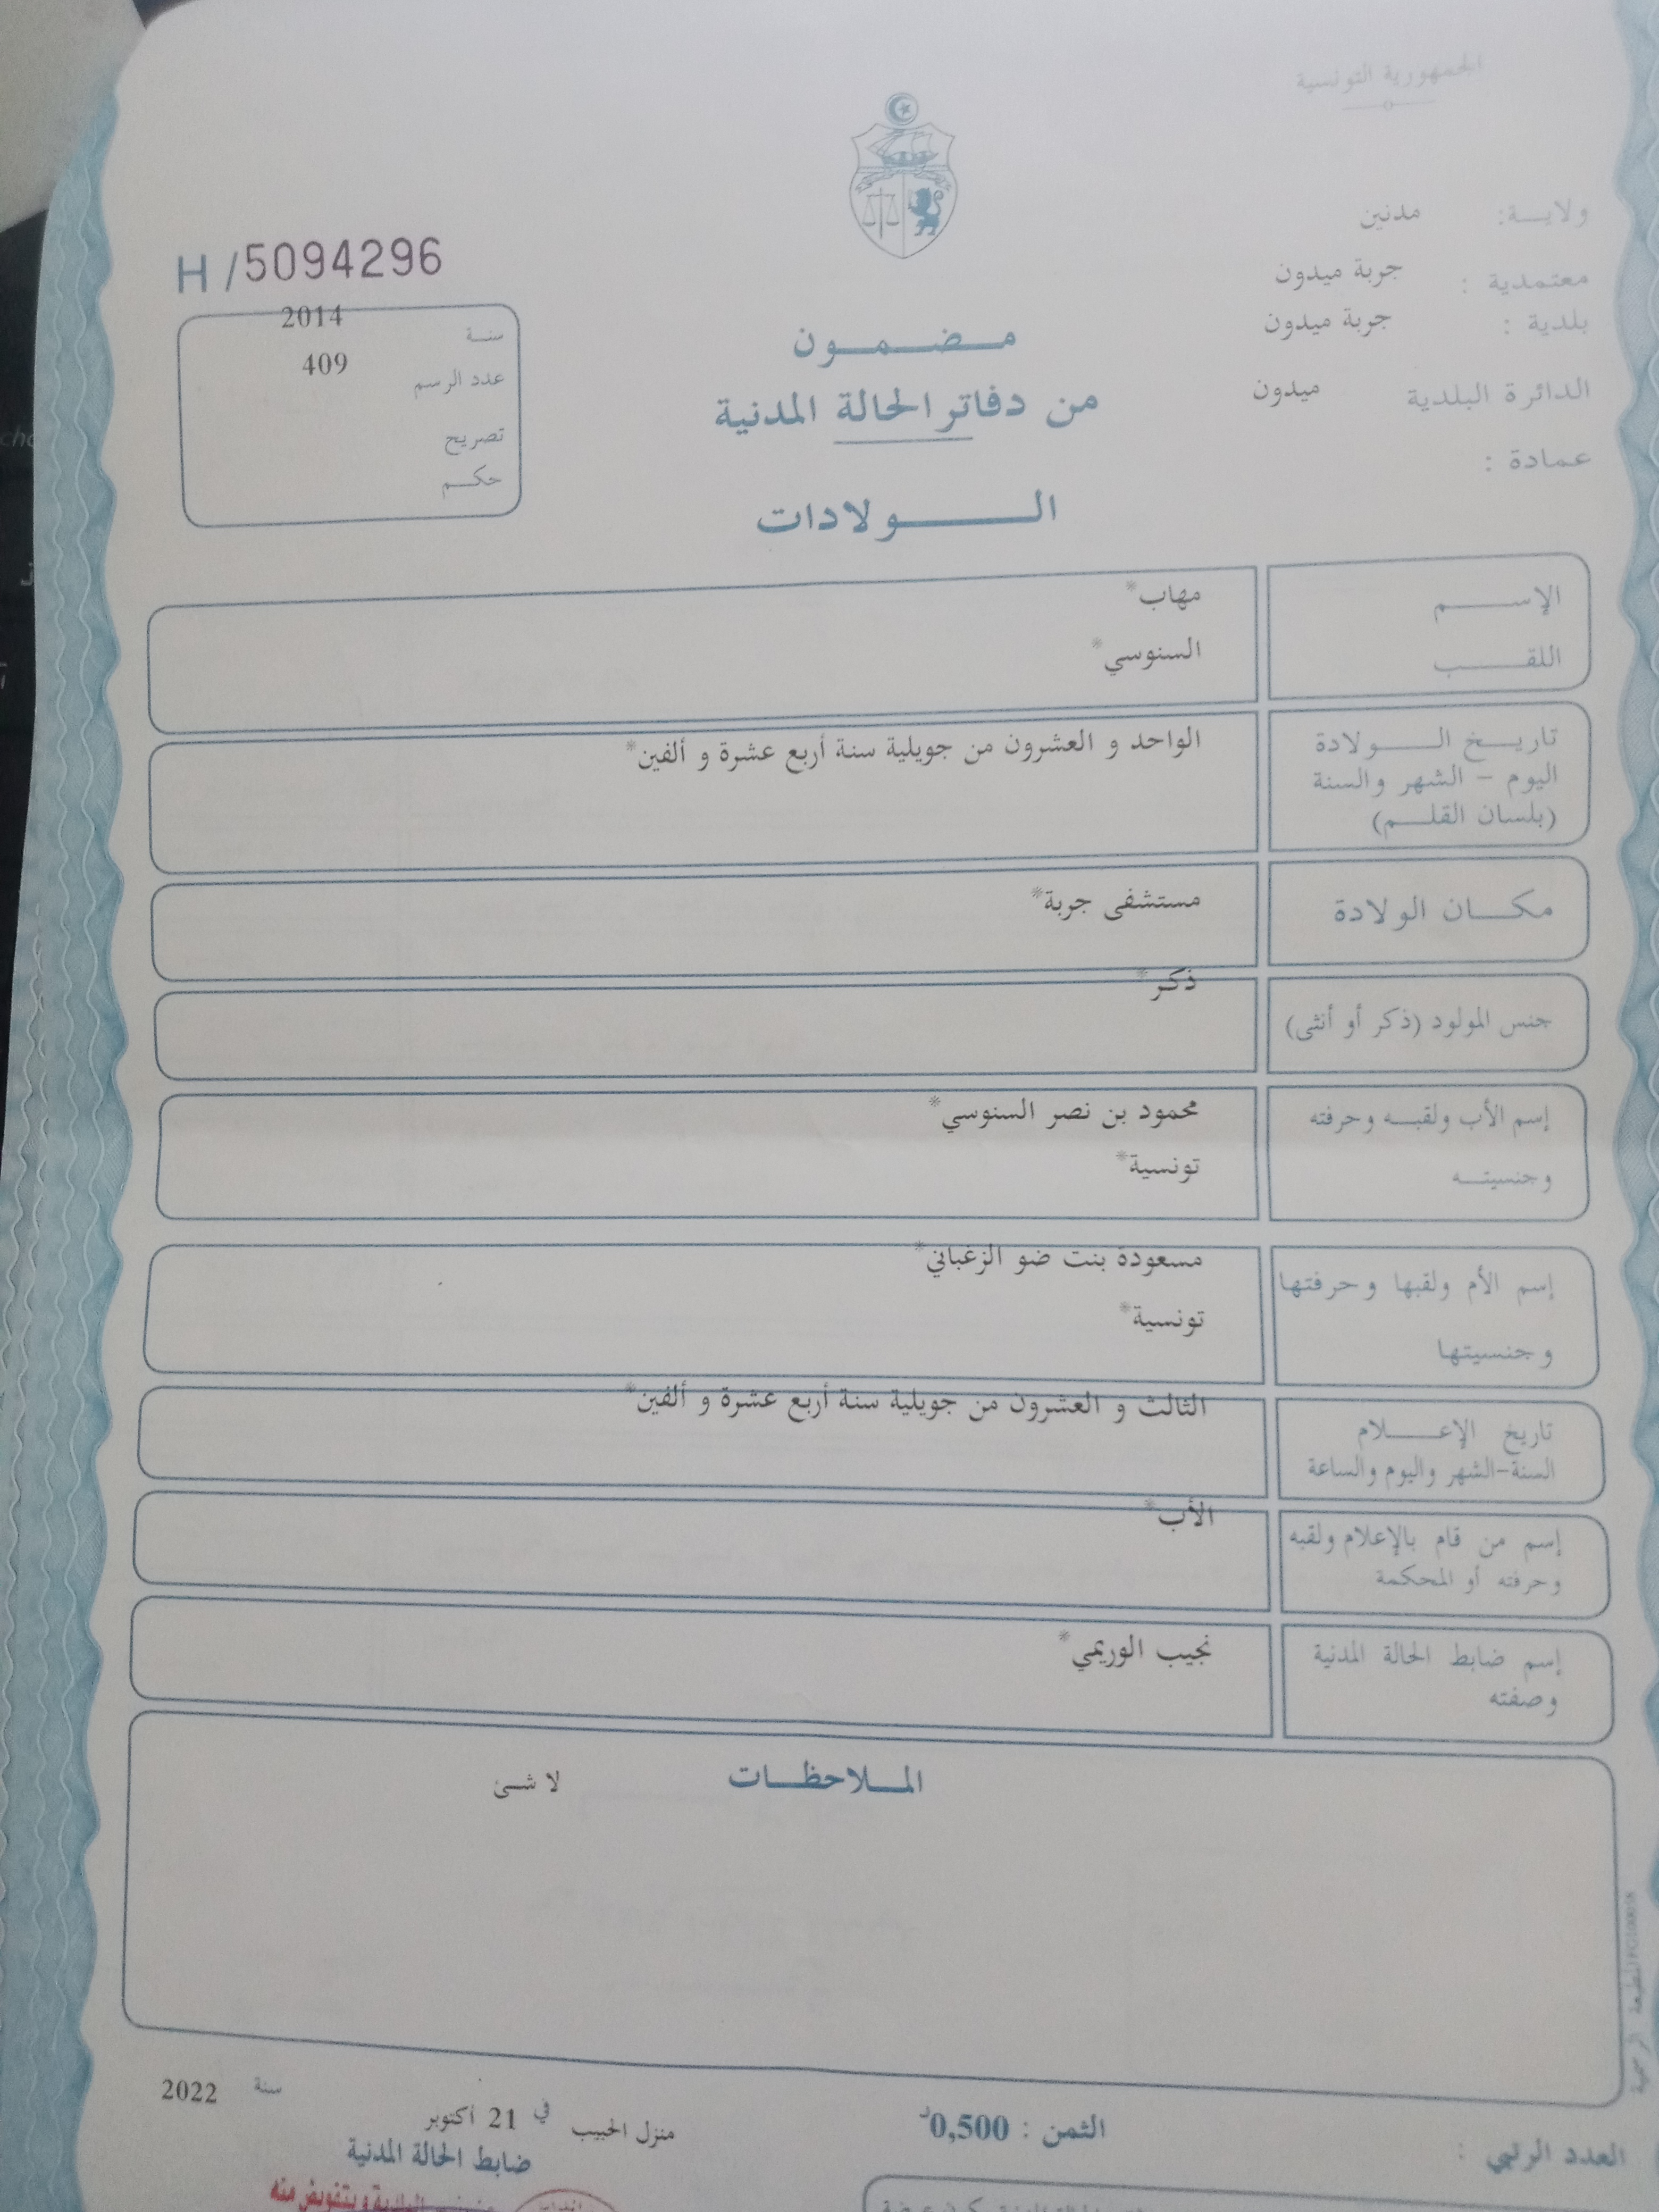 الجمهورية التونسية
ولايــة: مدنين
معتمدية : جربة ميدون
بلدية : جربة ميدون
الدائرة البلدية ميدون
عمادة :
H/5094296
سنة 2014
عدد الرسم 409
تصريح
حكم
مضمون
من دفاتر الحالة المدنية
الولادات
الإسم مهاب*
اللقب السنوسي*
تاريخ الولادة الواحد و العشرون من جويلية سنة أربع عشرة و ألفين*
اليوم - الشهر والسنة
(بلسان القلم)
مكان الولادة مستشفى جربة*
جنس المولود (ذكر أو أنثى) ذكر*
إسم الأب ولقبه وحرفته محمود بن نصر السنوسي*
وجنسيته تونسية*
إسم الأم ولقبها وحرفتها مسعودة بنت ضو الزغباني*
وجنسيتها تونسية*
تاريخ الإعلام الثالث و العشرون من جويلية سنة أربع عشرة و ألفين*
السنة-الشهر واليوم والساعة
إسم من قام بالإعلام ولقبه الأب*
وحرفته أو المحكمة
إسم ضابط الحالة المدنية نجيب الوريمي*
وصفته
الملاحظات لا شئ
المطبعة الرسمية
العدد الرتبي :
الثمن : 0,500د
منزل الحبيب في 21 أكتوبر سنة 2022
ضابط الحالة المدنية